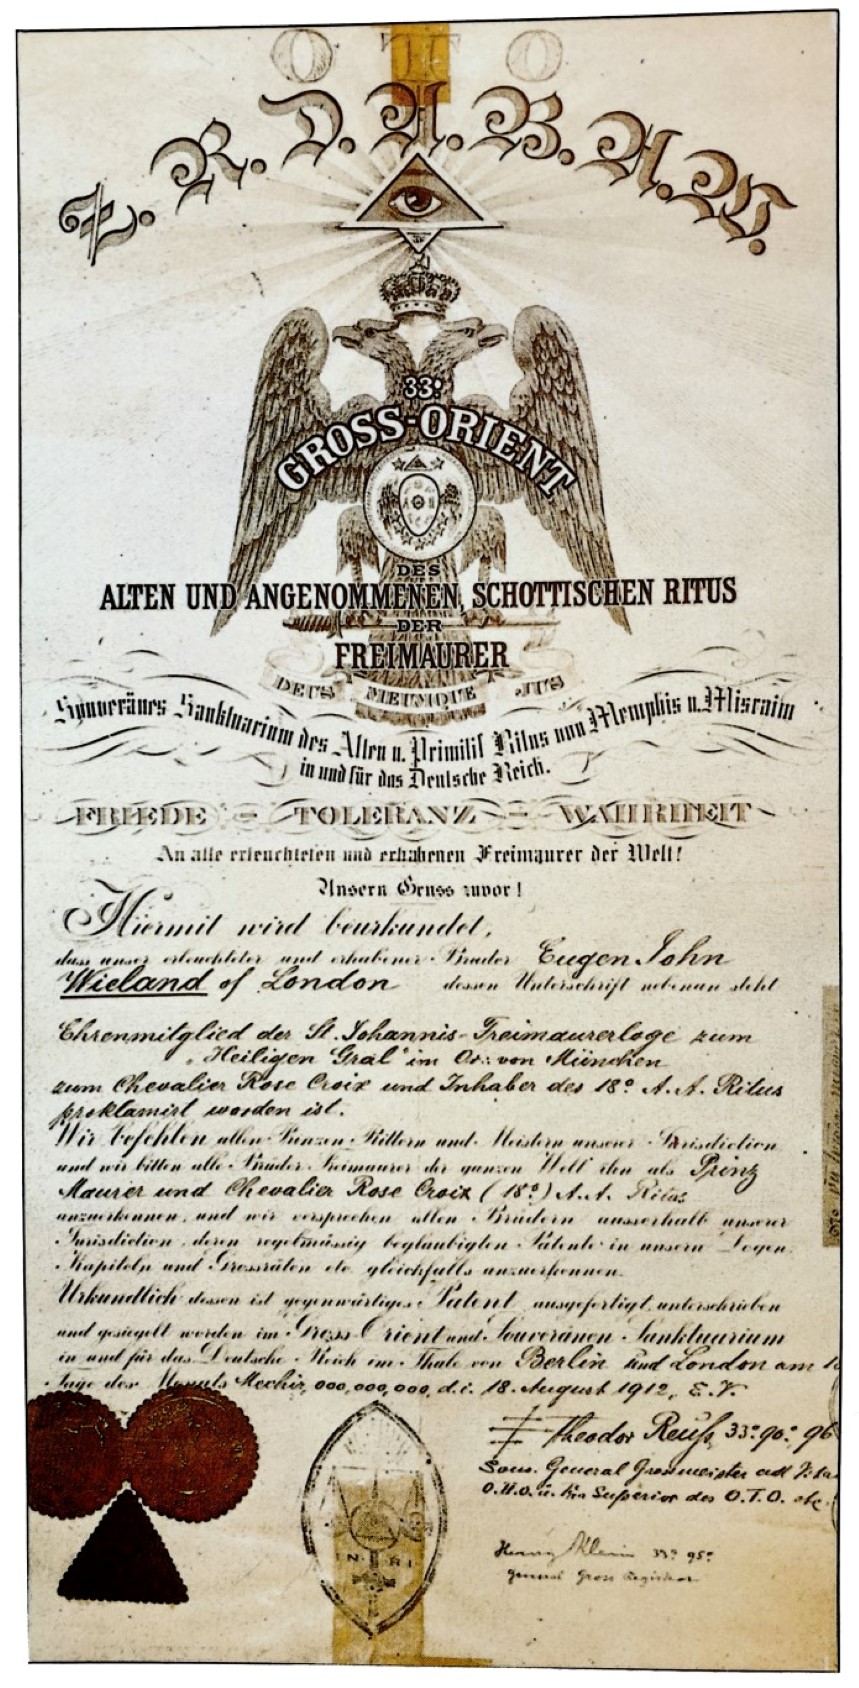 O T O
Z. R. D. A. B. A. W.
33°
GROSS-ORIENT
DES
ALTEN UND ANGENOMMENEN, SCHOTTISCHEN RITUS
DER
FREIMAURER
DEUS MEUMQUE JUS
Souveränes Sanktuarium des Alten u. Primitif Ritus von Memphis u. Misraim
in und für das Deutsche Reich.
FRIEDE - TOLERANZ - WAHRHEIT
An alle erleuchteten und erhabenen Freimaurer der Welt!
Unsern Gruss zuvor!
Hiermit wird beurkundet,
dass unser erleuchteter und erhabener Bruder Eugen John
Wieland of London dessen Unterschrift nebenan steht
Ehrenmitglied der St. Johannis-Freimaurerloge zum
"Heiligen Gral" im Or∴ von München
zum Chevalier Rose Croix und Inhaber des 18° A. A. Ritus
proklamirt worden ist.
Wir befehlen allen Prinzen Rittern und Meistern unserer Jurisdiction
und wir bitten alle Brüder Freimaurer der ganzen Welt den als Prinz
Maurer und Chevalier Rose Croix (18°) A. A. Ritus
anzuerkennen, und wir versprechen allen Brüdern ausserhalb unserer
Jurisdiction, deren regelmässig beglaubigten Patente in unsern Logen,
Kapiteln und Grossräten etc. gleichfalls anzuerkennen.
Urkundlich dessen ist gegenwärtiges Patent ausgefertigt, unterschrieben
und gesiegelt worden im Gross-Orient und Souveränen Sanktuarium
in und für das Deutsche Reich im Thale von Berlin und London am
Tage des Monats Mechir, 000,000,000, d. i. 18. August 1912, E. V.
Theodor Reuß, 33° 90° 96
Souv. General Grossmeister ad Vitam
O.H.O. u. Superior des O.T.O. etc.
I N R I
Henry Klein 33° 95°
General Gross Registrar